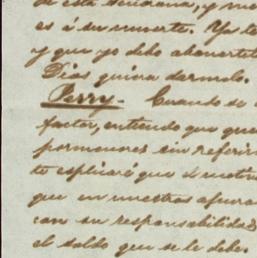 de esta semana, y me
es á su muerte. Ya te
y que yo debo abonartel
Dios quiera darmelo.
Perry. Cuando se
factor, entiendo que que
pormenores sin referir
te esplicaré que el motiv
que en nuestros apuros
con su responsabilidad
el saldo que se le debe.